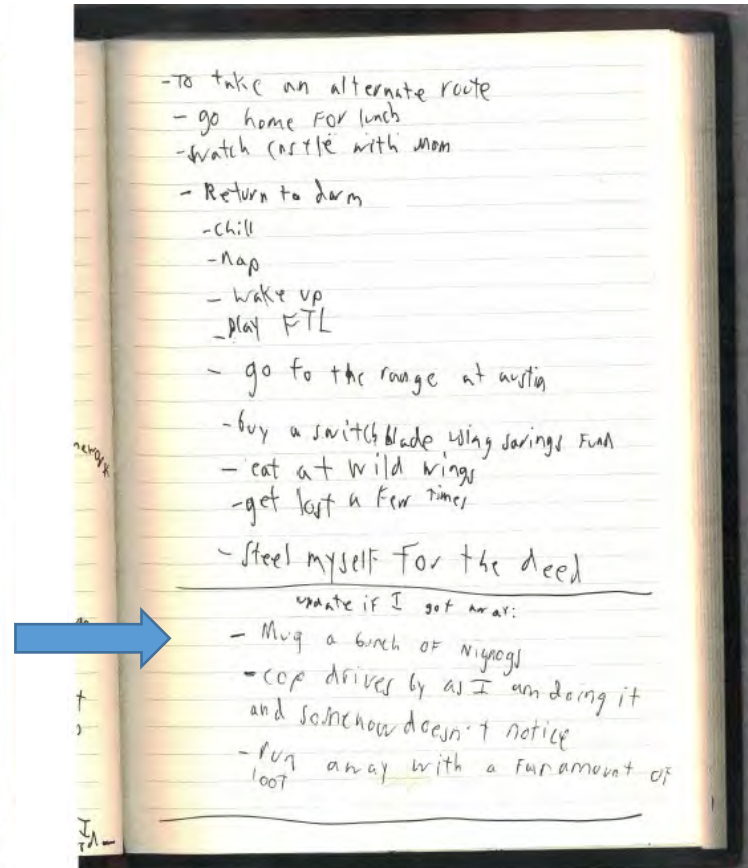 -To take an alternate route
- go home For lunch
-watch Castle with mom
- Return to dorm
-Chill
-nap
- wake up
-play FTL
- go to the range at austin
-buy a switchblade using savings Fund
- eat at wild wings
-get lost a few times
- Steel myself for the deed
update if I get away:
- Mug a bunch of Nignogs
- cop drives by as I am doing it
and somehow doesn't notice
- run away with a fun amount of
loot
I